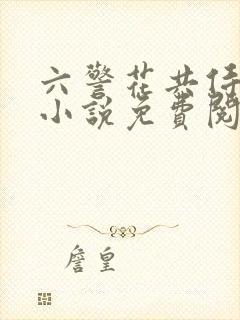 六警花共侍
小说免費閱
詹皇